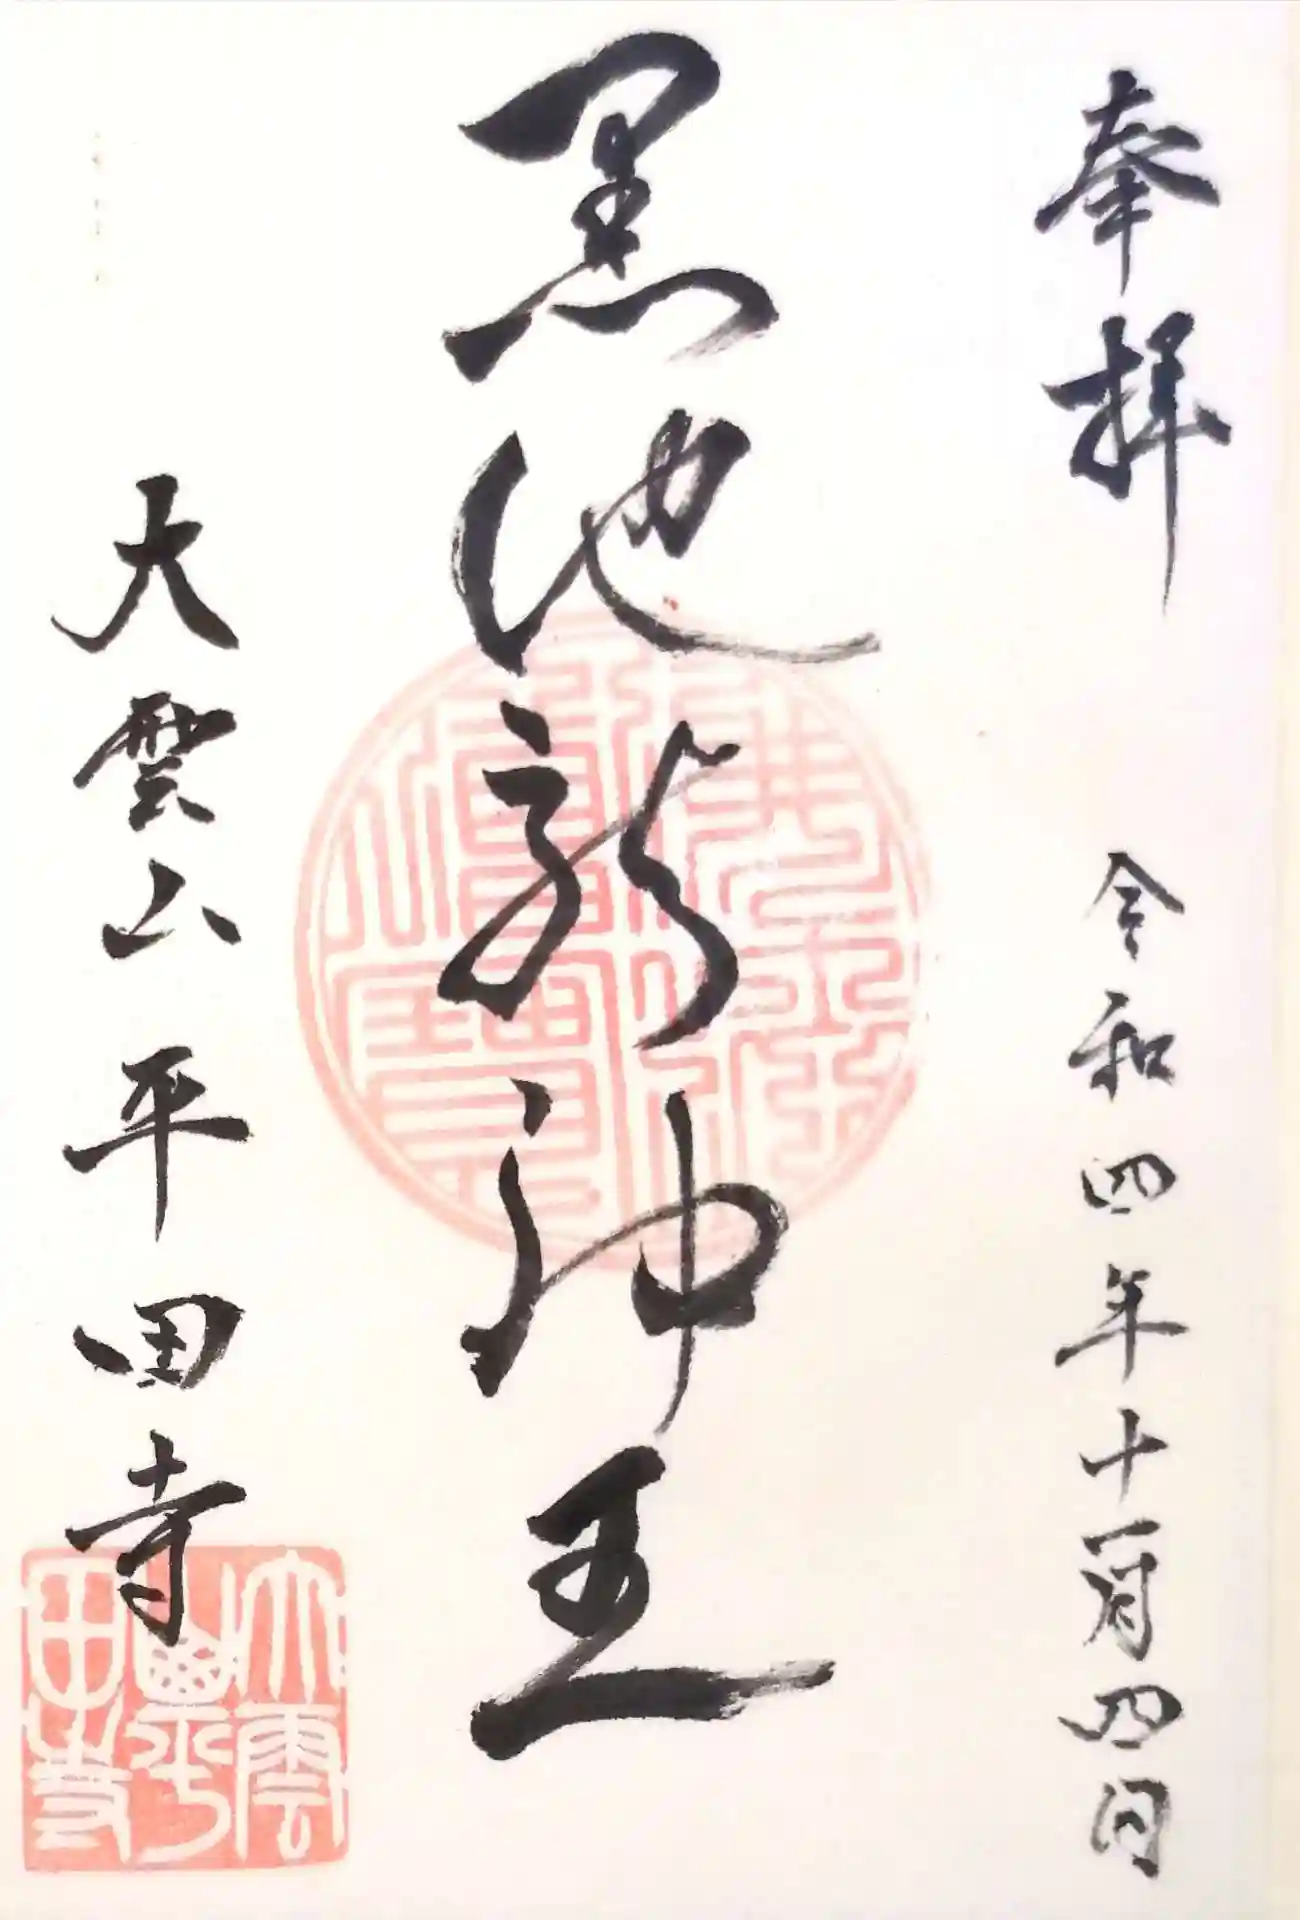 奉拝 令和四年十一月四日
黒池龍神王
大雲山平田寺
佛法僧寶
大雲山平田寺